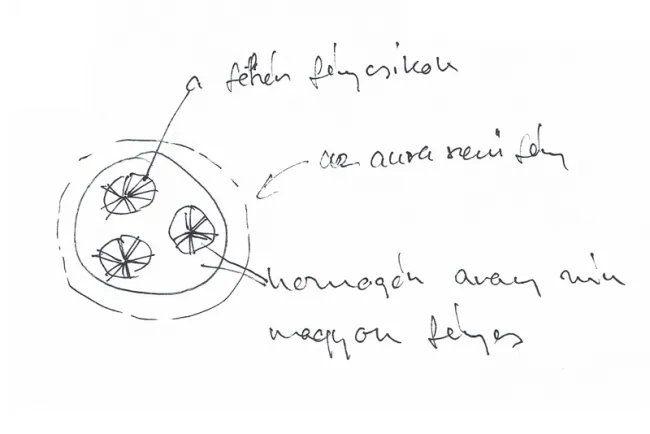 a fehér fénycsíkok
az aura szerű fény
homogén arany szín
nagyon fényes